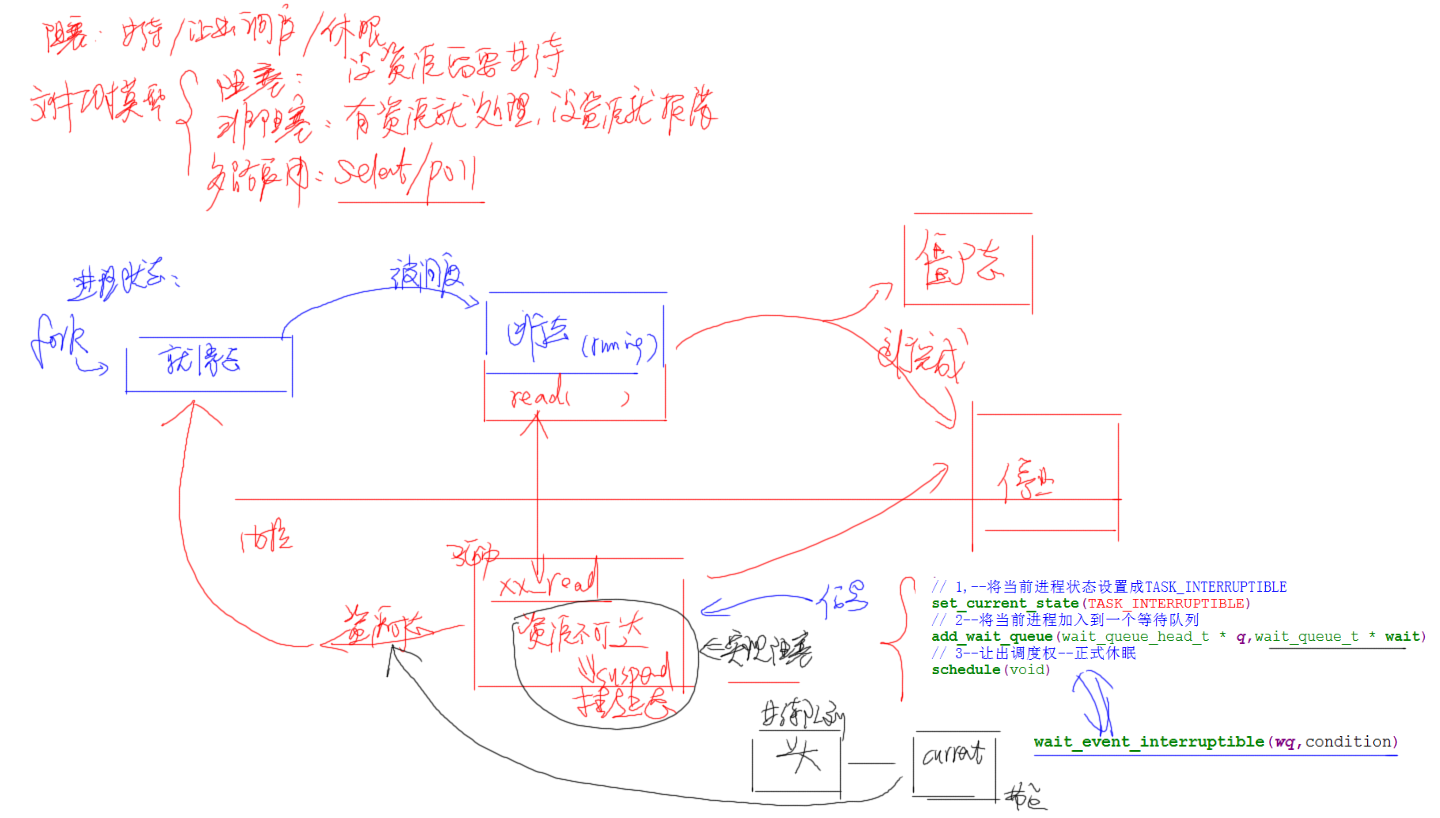 阻塞: 等待/让出调度/休眠
文件IO模型
阻塞: 没资源需要等待
非阻塞: 有资源就处理, 没资源就报错
多路复用: select/poll
进程状态:
被调度
fork
就绪态
(running)
read( )
僵尸态
完成
停止
内核
驱动
xx_read
资源不可达
suspend
挂起态
资源可达
信号
实现阻塞
// 1,--将当前进程状态设置成TASK_INTERRUPTIBLE
set_current_state(TASK_INTERRUPTIBLE)
// 2--将当前进程加入到一个等待队列
add_wait_queue(wait_queue_head_t * q,wait_queue_t * wait)
// 3--让出调度权--正式休眠
schedule(void)
wait_event_interruptible(wq,condition)
等待队列
头
current